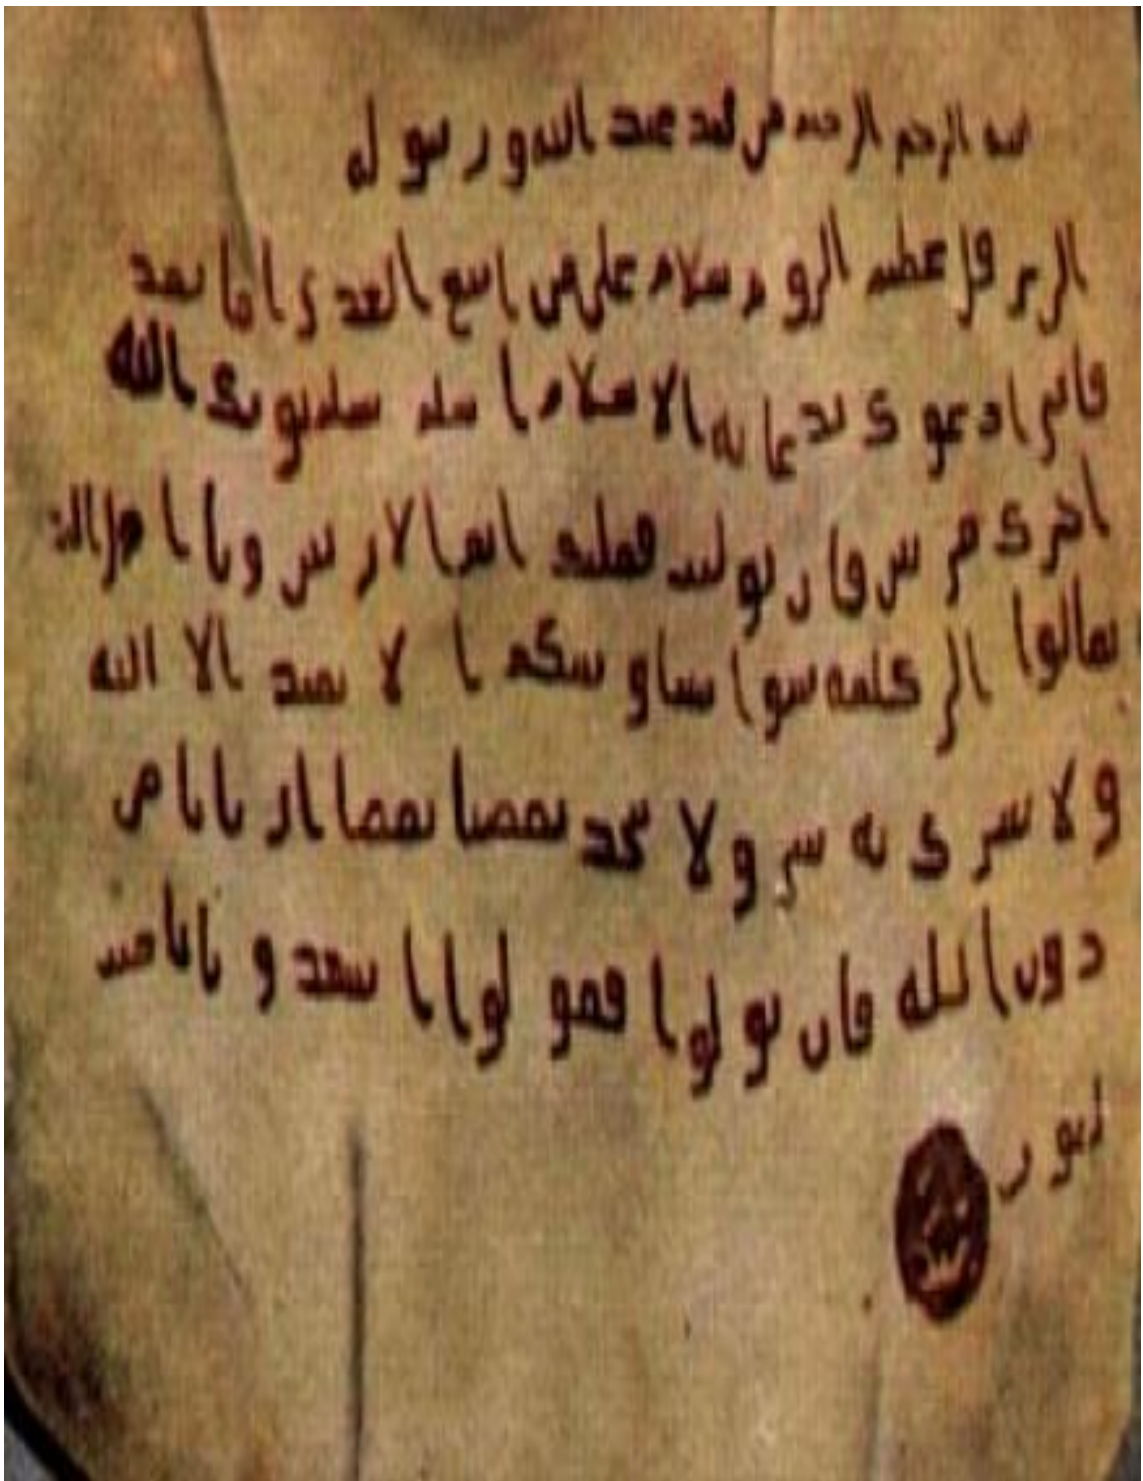 بسم الله الرحمن الرحيم من محمد عبد الله ورسوله
الى هرقل عظيم الروم سلام على من اتبع الهدى اما بعد
فانى ادعوك بدعاية الاسلام اسلم تسلم يوتك الله
اجرك مرتين فان توليت فعليك اثم الاريسين ويا اهل الكتاب
تعالوا الى كلمة سوا بيننا وبينكم ا لا نعبد الا الله
ولا نشرك به شيا ولا يتخذ بعضنا بعضا اربابا من
دون الله فان تولوا فقولوا اشهدوا بانا مسلمون